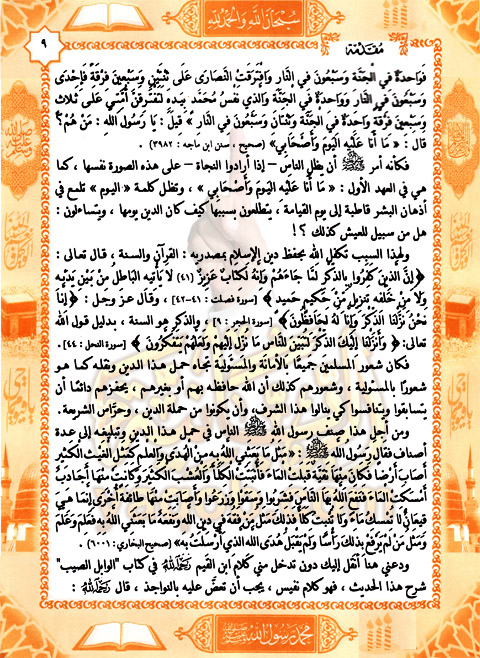 سبحان الله والحمد لله
مقدمة
٩
فَوَاحِدَةٌ فِي الْجَنَّةِ وَسَبْعُونَ فِي النَّارِ وَافْتَرَقَتْ النَّصَارَى عَلَى ثِنْتَيْنِ وَسَبْعِينَ فِرْقَةً فَإِحْدَى
وَسَبْعُونَ فِي النَّارِ وَوَاحِدَةٌ فِي الْجَنَّةِ وَالَّذِي نَفْسُ مُحَمَّدٍ بِيَدِهِ لَتَفْتَرِقَنَّ أُمَّتِي عَلَى ثَلَاثٍ
وَسَبْعِينَ فِرْقَةً وَاحِدَةٌ فِي الْجَنَّةِ وَثِنْتَانِ وَسَبْعُونَ فِي النَّارِ » قيل : يَا رَسُولَ اللهِ : مَنْ هُمْ؟
قال : « مَا أَنَا عَلَيْهِ الْيَوْمَ وَأَصْحَابِي » (صحيح ، سنن ابن ماجه : ٣٩٨٢) .
فكأنه أمر ﷺ أن يظل الناس – إذا أرادوا النجاة – على هذه الصورة نفسها ، كما
هي في العهد الأول : « مَا أَنَا عَلَيْهِ الْيَوْمَ وَأَصْحَابِي » ، وتظل كلمة « اليوم » تلمع في
أذهان البشر قاطبة إلى يوم القيامة ، يتطلعون بسببها كيف كان الدين يومها ، ويتساءلون :
هل من سبيل للعيش كذلك ؟!
ولهذا السبب تكفل الله بحفظ دين الإسلام بمصدريه : القرآن والسنة ، قال تعالى :
﴿إِنَّ الَّذِينَ كَفَرُوا بِالذِّكْرِ لَمَّا جَاءَهُمْ وَإِنَّهُ لَكِتَابٌ عَزِيزٌ (٤١) لَا يَأْتِيهِ الْبَاطِلُ مِنْ بَيْنِ يَدَيْهِ
وَلَا مِنْ خَلْفِهِ تَنْزِيلٌ مِنْ حَكِيمٍ حَمِيدٍ ﴾ [سورة فصلت : ٤١-٤٢] ، وقال عز وجل : ﴿إِنَّا
نَحْنُ نَزَّلْنَا الذِّكْرَ وَإِنَّا لَهُ لَحَافِظُونَ﴾ [سورة الحجر : ٩] ، والذكر هو السنة ، بدليل قول الله
تعالى: ﴿ وَأَنْزَلْنَا إِلَيْكَ الذِّكْرَ لِتُبَيِّنَ لِلنَّاسِ مَا نُزِّلَ إِلَيْهِمْ وَلَعَلَّهُمْ يَتَفَكَّرُونَ ﴾ [سورة النحل : ٤٤] .
فكان شعور المسلمين جميعًا بالأمانة والمسئولية تجاه حمل هذا الدين ونقله كما هو
شعورًا بالمسئولية ، وشعورهم كذلك أن الله حافظه بهم أو بغيرهم ، يحفزهم دائمًا أن
يتسابقوا ويتنافسوا كي ينالوا هذا الشرف، وأن يكونوا من حملة الدين ، وحراس الشريعة.
ومن أجل هذا صنف رسول الله ﷺ الناس في حمل هذا الدين وتبليغه إلى عدة
أصناف فقال رسول الله ﷺ : « مَثَلُ مَا بَعَثَنِي اللهُ بِهِ مِنْ الْهُدَى وَالْعِلْمِ كَمَثَلِ الْغَيْثِ الْكَثِيرِ
أَصَابَ أَرْضًا فَكَانَ مِنْهَا نَقِيَّةٌ قَبِلَتْ الْمَاءَ فَأَنْبَتَتْ الْكَلَأَ وَالْعُشْبَ الْكَثِيرَ وَكَانَتْ مِنْهَا أَجَادِبُ
أَمْسَكَتْ الْمَاءَ فَنَفَعَ اللهُ بِهَا النَّاسَ فَشَرِبُوا وَسَقَوْا وَزَرَعُوا وَأَصَابَتْ مِنْهَا طَائِفَةً أُخْرَى إِنَّمَا هِيَ
قِيعَانٌ لَا تُمْسِكُ مَاءً وَلَا تُنْبِتُ كَلَأً فَذَلِكَ مَثَلُ مَنْ فَقُهَ فِي دِينِ اللهِ وَنَفَعَهُ مَا بَعَثَنِي اللهُ بِهِ فَعَلِمَ وَعَلَّمَ
وَمَثَلُ مَنْ لَمْ يَرْفَعْ بِذَلِكَ رَأْسًا وَلَمْ يَقْبَلْ هُدَى اللهِ الَّذِي أُرْسِلْتُ بِهِ» (صحيح البخاري : ٦٠٠١) .
ودعني هنا أنقل إليك دون تدخل مني كلام ابن القيم رحمه الله في كتاب "الوابل الصيب"
شرح هذا الحديث ، فهو كلام نفيس ، يجب أن تعض عليه بالنواجذ ، قال رحمه الله :
محمد رسول الله ﷺ